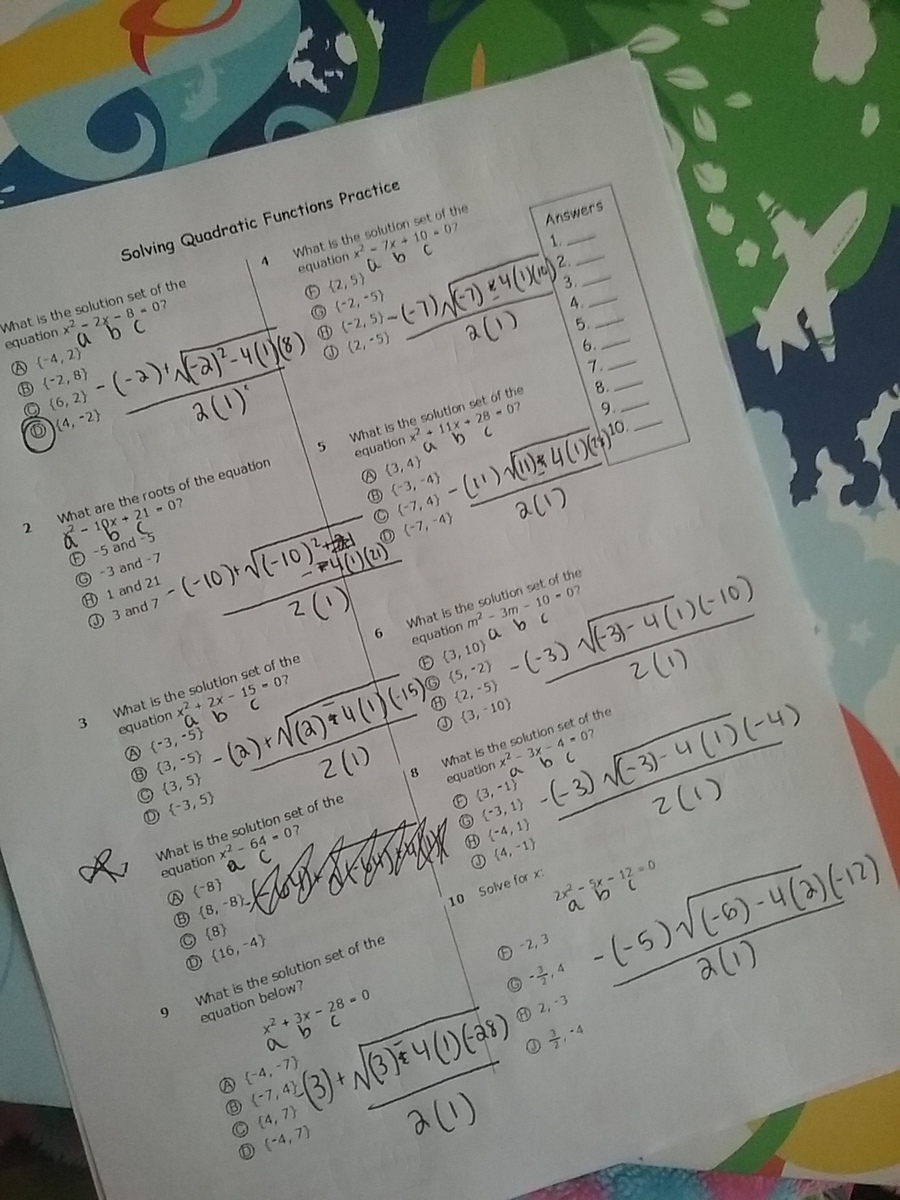 Solving Quadratic Functions Practice
What is the solution set of the
equation x² − 2x − 8 = 0?
a b c
Ⓐ {-4, 2}
Ⓑ {-2, 8}
Ⓒ {6, 2}
Ⓓ {4, -2}
-(-2)+√(-2)²-4(1)(8)
2(1)
2 What are the roots of the equation
x² − 10x + 21 = 0?
a b c
Ⓕ -5 and -5
Ⓖ -3 and -7
Ⓗ 1 and 21
Ⓙ 3 and 7
-(-10)+√(-10)²
-4(1)(21)
2(1)
3 What is the solution set of the
equation x² + 2x − 15 = 0?
a b c
Ⓐ {-3, -5}
Ⓑ {3, -5}
Ⓒ {3, 5}
Ⓓ {-3, 5}
-(2)+√(2)-4(1)(-15)
2(1)
What is the solution set of the
equation x² − 64 = 0?
a c
Ⓐ {-8}
Ⓑ {8, -8}
Ⓒ {8}
Ⓓ {16, -4}
9 What is the solution set of the
equation below?
x² + 3x − 28 = 0
a b c
Ⓐ {-4, -7}
Ⓑ {-7, 4}
Ⓒ {4, 7}
Ⓓ {-4, 7}
-(3)+√(3)-4(1)(-28)
2(1)
4 What is the solution set of the
equation x² − 7x + 10 = 0?
a b c
Ⓕ {2, 5}
Ⓖ {-2, -5}
Ⓗ {-2, 5}
Ⓙ {2, -5}
-(-7)√(-7)-4(1)(10)
2(1)
5 What is the solution set of the
equation x² + 11x + 28 = 0?
a b c
Ⓐ {3, 4}
Ⓑ {-3, -4}
Ⓒ {-7, 4}
Ⓓ {-7, -4}
-(11)√(11)-4(1)
2(1)
6 What is the solution set of the
equation m² − 3m − 10 = 0?
a b c
Ⓕ {3, 10}
Ⓖ {5, -2}
Ⓗ {2, -5}
Ⓙ {3, -10}
-(-3)√(-3)-4(1)(-10)
2(1)
8 What is the solution set of the
equation x² − 3x − 4 = 0?
a b c
Ⓕ {3, -1}
Ⓖ {-3, 1}
Ⓗ {-4, 1}
Ⓙ {4, -1}
-(-3)√(-3)-4(1)(-4)
2(1)
10 Solve for x:
2x² − 5x − 12 = 0
a b c
Ⓕ -2, 3
Ⓖ -3/2, 4
Ⓗ 2, -3
Ⓙ 3/2, -4
-(-5)√(-5)-4(2)(-12)
2(1)
Answers
1. ___
2. ___
3. ___
4. ___
5. ___
6. ___
7. ___
8. ___
9. ___
10. ___